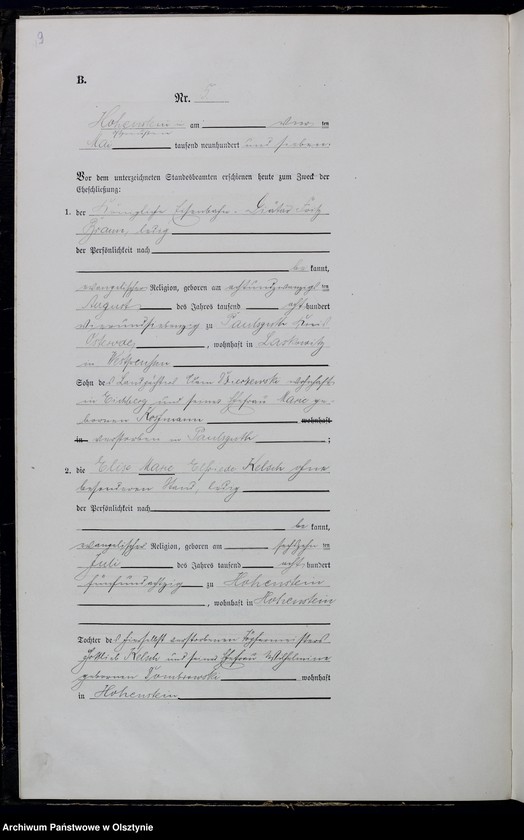 9
B.
Nr. 5
Hohenstein am vier ten
Mai tausend neunhundert und sieben
Vor dem unterzeichneten Standesbeamten erschienen heute zum Zweck der
Eheschließung:
1. der Königliche Eisenbahn-
ledig
der Persönlichkeit nach
be kannt,
evangelischer Religion, geboren am achtundzwanzigsten
August des Jahres tausend acht hundert
vierundsiebzig zu Paulsgut Kreis
Osterode, wohnhaft in Laskowitz
in Westpreußen
Sohn des wohnhaft
in und seiner Ehefrau Marie ge-
borenen Hoffmann wohnhaft
in verstorben in Paulsgut ;
2. die Elise Marie Elfriede Kelsch ohne
besonderen Stand, ledig
der Persönlichkeit nach
be kannt,
evangelischer Religion, geboren am sechzehn ten
Juli des Jahres tausend acht hundert
fünfundachtzig zu Hohenstein
, wohnhaft in Hohenstein
Tochter des hierselbst verstorbenen Töpfermeisters
Gottlieb Kelsch und seiner Ehefrau Wilhelmine
geborenen Dombrowski wohnhaft
in Hohenstein
Archiwum Państwowe w Olsztynie